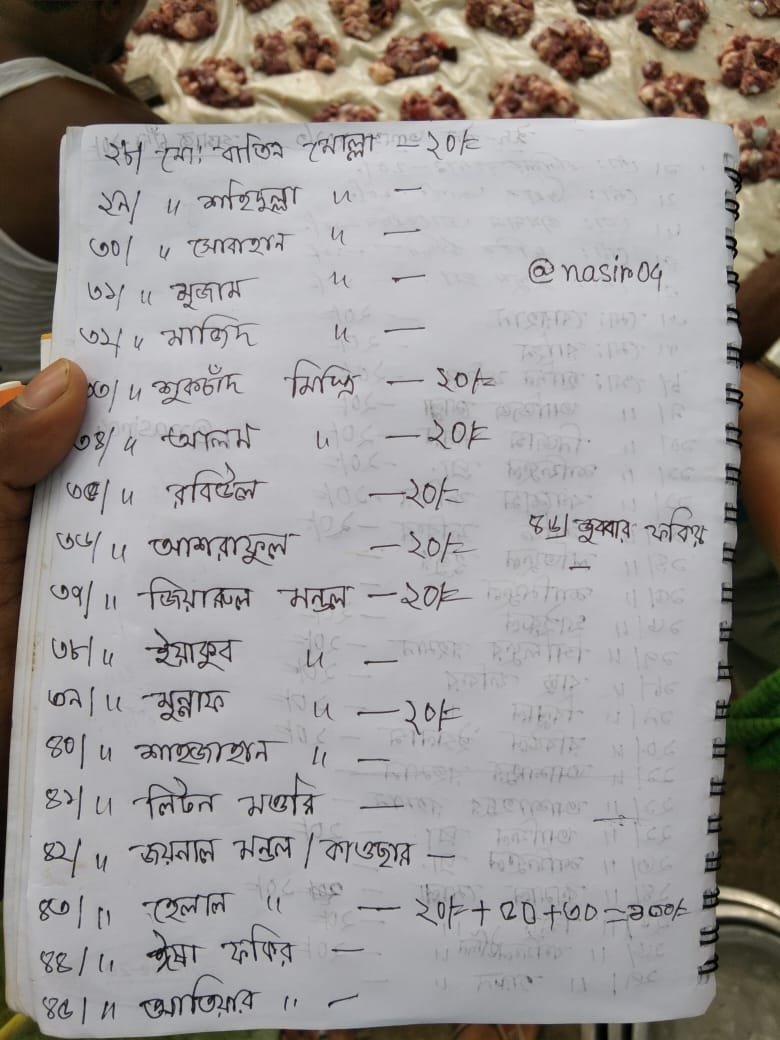 ২৮/ মো: বাতিন মোল্লা = ২০/=
২৯/ " শহিদুল্লা " —
৩০/ " সোবাহান " —
৩১/ " মুজাম " —
@nasir04
৩২/ " মাজিদ " —
৩৩/ " শুকচাঁদ মিস্ত্রি — ২০/=
৩৪/ " আলম " — ২০/=
৩৫/ " রবিউল — ২০/=
৪৬/ জুব্বার ফকির —
৩৬/ " আশরাফুল — ২০/=
৩৭/ " জিয়ারুল মন্ডল — ২০/=
৩৮/ " ইয়াকুব " —
৩৯/ " মুন্নাফ " — ২০/=
৪০/ " শাহজাহান " —
৪১/ " লিটন —
৪২/ " জয়নাল মন্ডল / কাওছার —
৪৩/ " হেলাল " — ২০/= + ৫০ + ৩০ = ১০০/=
৪৪/ " ঈষা ফকির —
৪৫/ " আতিয়ার " —